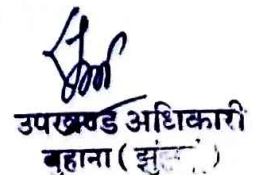 उपखण्ड अधिकारी
बुहाना (